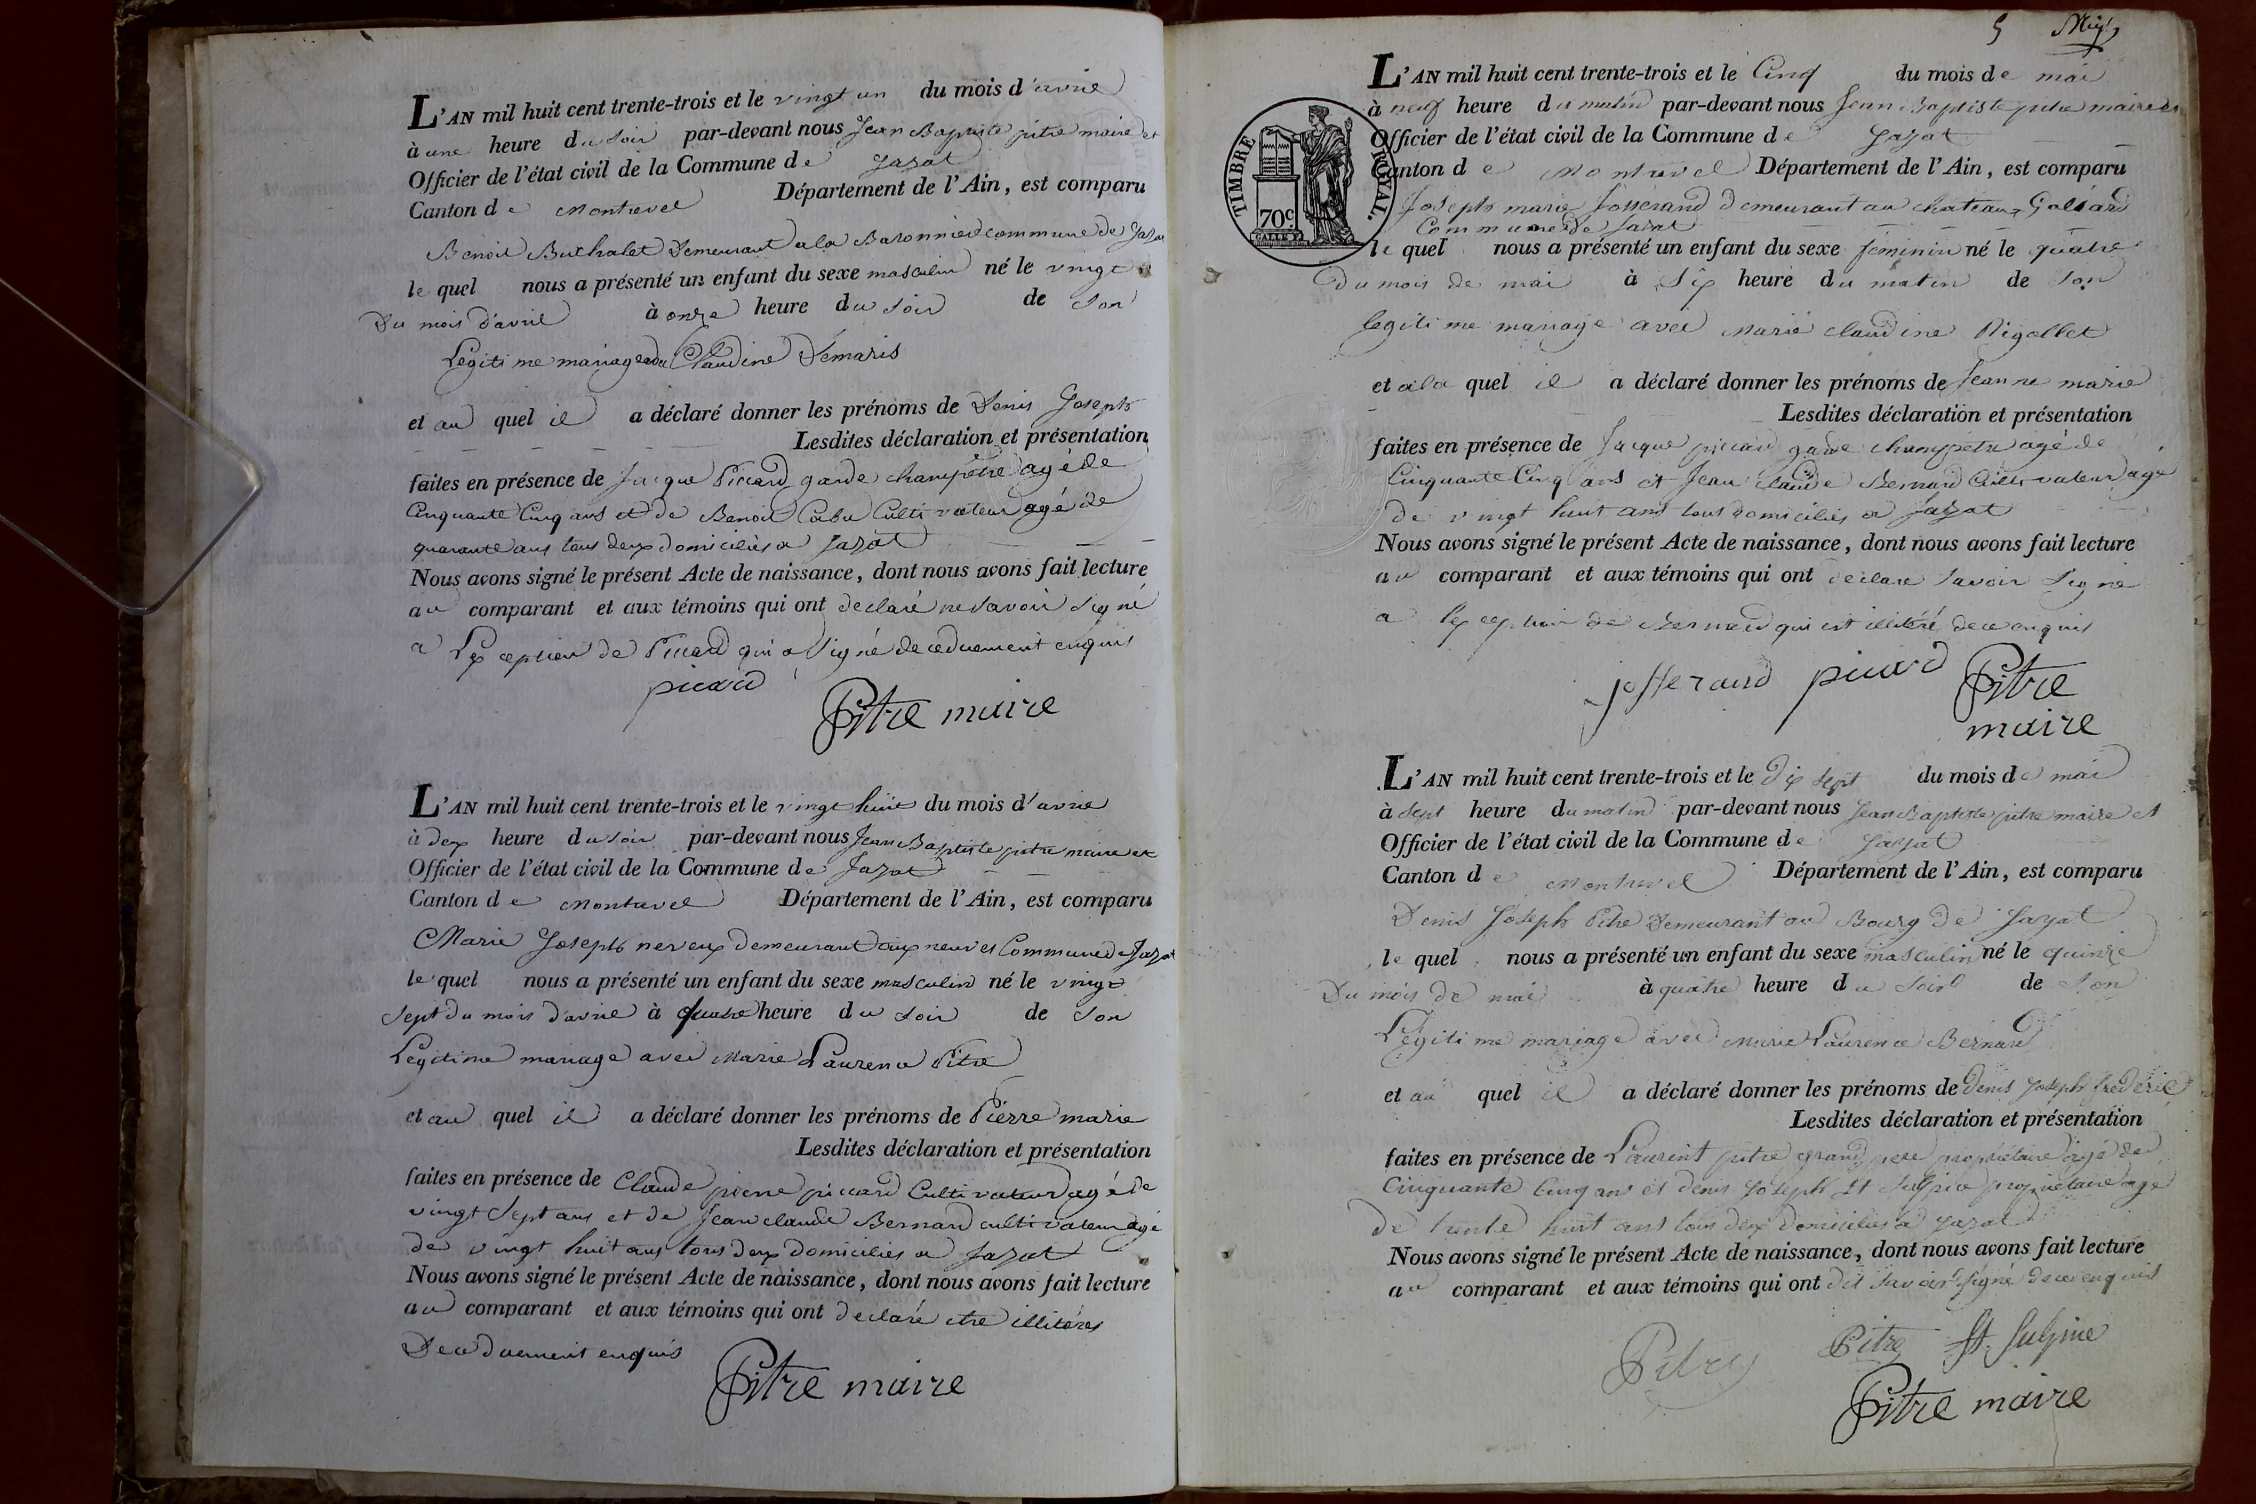 L'AN mil huit cent trente-trois et le vingt un du mois d'avril
à une heure du soir par-devant nous Jean Baptiste pitre maire et
Officier de l'état civil de la Commune de Jayat
Canton de Montrevel Département de l'Ain, est comparu
Benoit Buthalet Demeurant a la Baronnier commune de Jayat
le quel nous a présenté un enfant du sexe masculin né le vingt
Du mois d'avril à onze heure du soir de son
Legiti me mariage avec Claudine Demaris
et au quel il a déclaré donner les prénoms de Denis Joseph
Lesdites déclaration et présentation
faites en présence de Jacque Piccard garde champêtre agé de
Cinquante Cinq ans et de Benoit Cultivateur agé de
quarante ans tous deux domiciliés a Jayat
Nous avons signé le présent Acte de naissance, dont nous avons fait lecture
au comparant et aux témoins qui ont declaré ne savoir signé
a Lexception de Piccard qui a signé de ceduement enquis
picard
Pitre maire
L'AN mil huit cent trente-trois et le vingt huit du mois d'avril
à deux heure du soir par-devant nous Jean Baptiste pitre maire et
Officier de l'état civil de la Commune de Jayat
Canton de Montrevel Département de l'Ain, est comparu
Marie Joseph nereux demeurant aux neuves Commune de Jayat
le quel nous a présenté un enfant du sexe masculin né le vingt
sept du mois d'avril à quatre heure du soir de son
Legitime mariage avec Marie Laurence Pitre
et au quel il a déclaré donner les prénoms de Pierre marie
Lesdites déclaration et présentation
faites en présence de Claude pierre piccard Cultivateur agé de
vingt Sept ans et de Jean claude Bernard cultivateur agé
de vingt huit ans tous deux domiciliés a Jayat
Nous avons signé le présent Acte de naissance, dont nous avons fait lecture
au comparant et aux témoins qui ont declaré etre illitérés
De ce duement enquis
Pitre maire
5
TIMBRE ROYAL.
70c
L'AN mil huit cent trente-trois et le Cinq du mois de mai
à neuf heure du matin par-devant nous Jean Baptiste pitre maire et
Officier de l'état civil de la Commune de Jayat
Canton de Montrevel Département de l'Ain, est comparu
Joseph marie Josserand demeurant au chateau Galiard
Commune de Jayat
le quel nous a présenté un enfant du sexe féminin né le quatre
Du mois de mai à Six heure du matin de son
legiti me mariage avec Marie claudine Rigollet
et a la quel il a déclaré donner les prénoms de Jeanne marie
Lesdites déclaration et présentation
faites en présence de Jacque piccard garde champetre agé de
Cinquante Cinq ans et Jean Claude Bernard Cultivateur agé
de vingt huit ans tous domiciliés a Jayat
Nous avons signé le présent Acte de naissance, dont nous avons fait lecture
au comparant et aux témoins qui ont declaré savoir signé
a lexception de Bernard qui est illitéré de ce enquis
josserand picard Pitre
maire
L'AN mil huit cent trente-trois et le Dix sept du mois de mai
à sept heure du matin par-devant nous Jean Baptiste pitre maire et
Officier de l'état civil de la Commune de Jayat
Canton de Montrevel Département de l'Ain, est comparu
Denis Joseph Pitre Demeurant au Bourg de Jayat
le quel nous a présenté un enfant du sexe masculin né le quinze
Du mois de mai à quatre heure du soir de son
Légiti me mariage avec Marie Laurence Bernard
et au quel il a déclaré donner les prénoms de denis Joseph frederic
Lesdites déclaration et présentation
faites en présence de Laurent pitre grand pere propriétaire agé de
Cinquante Cinq ans et denis Joseph St Sulpice propriétaire agé
de trente huit ans tous deux domiciliés a Jayat
Nous avons signé le présent Acte de naissance, dont nous avons fait lecture
au comparant et aux témoins qui ont dit savoir signé de ce enquis
Pitre Pitre St. Sulpice
Pitre maire